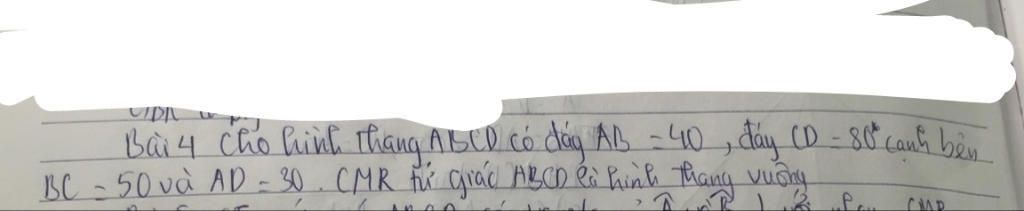 Bài 4 Cho hình thang ABCD có đáy AB = 40, đáy CD = 80 cạnh bên
BC = 50 và AD = 30. CMR tứ giác ABCD là hình thang vuông
CMR